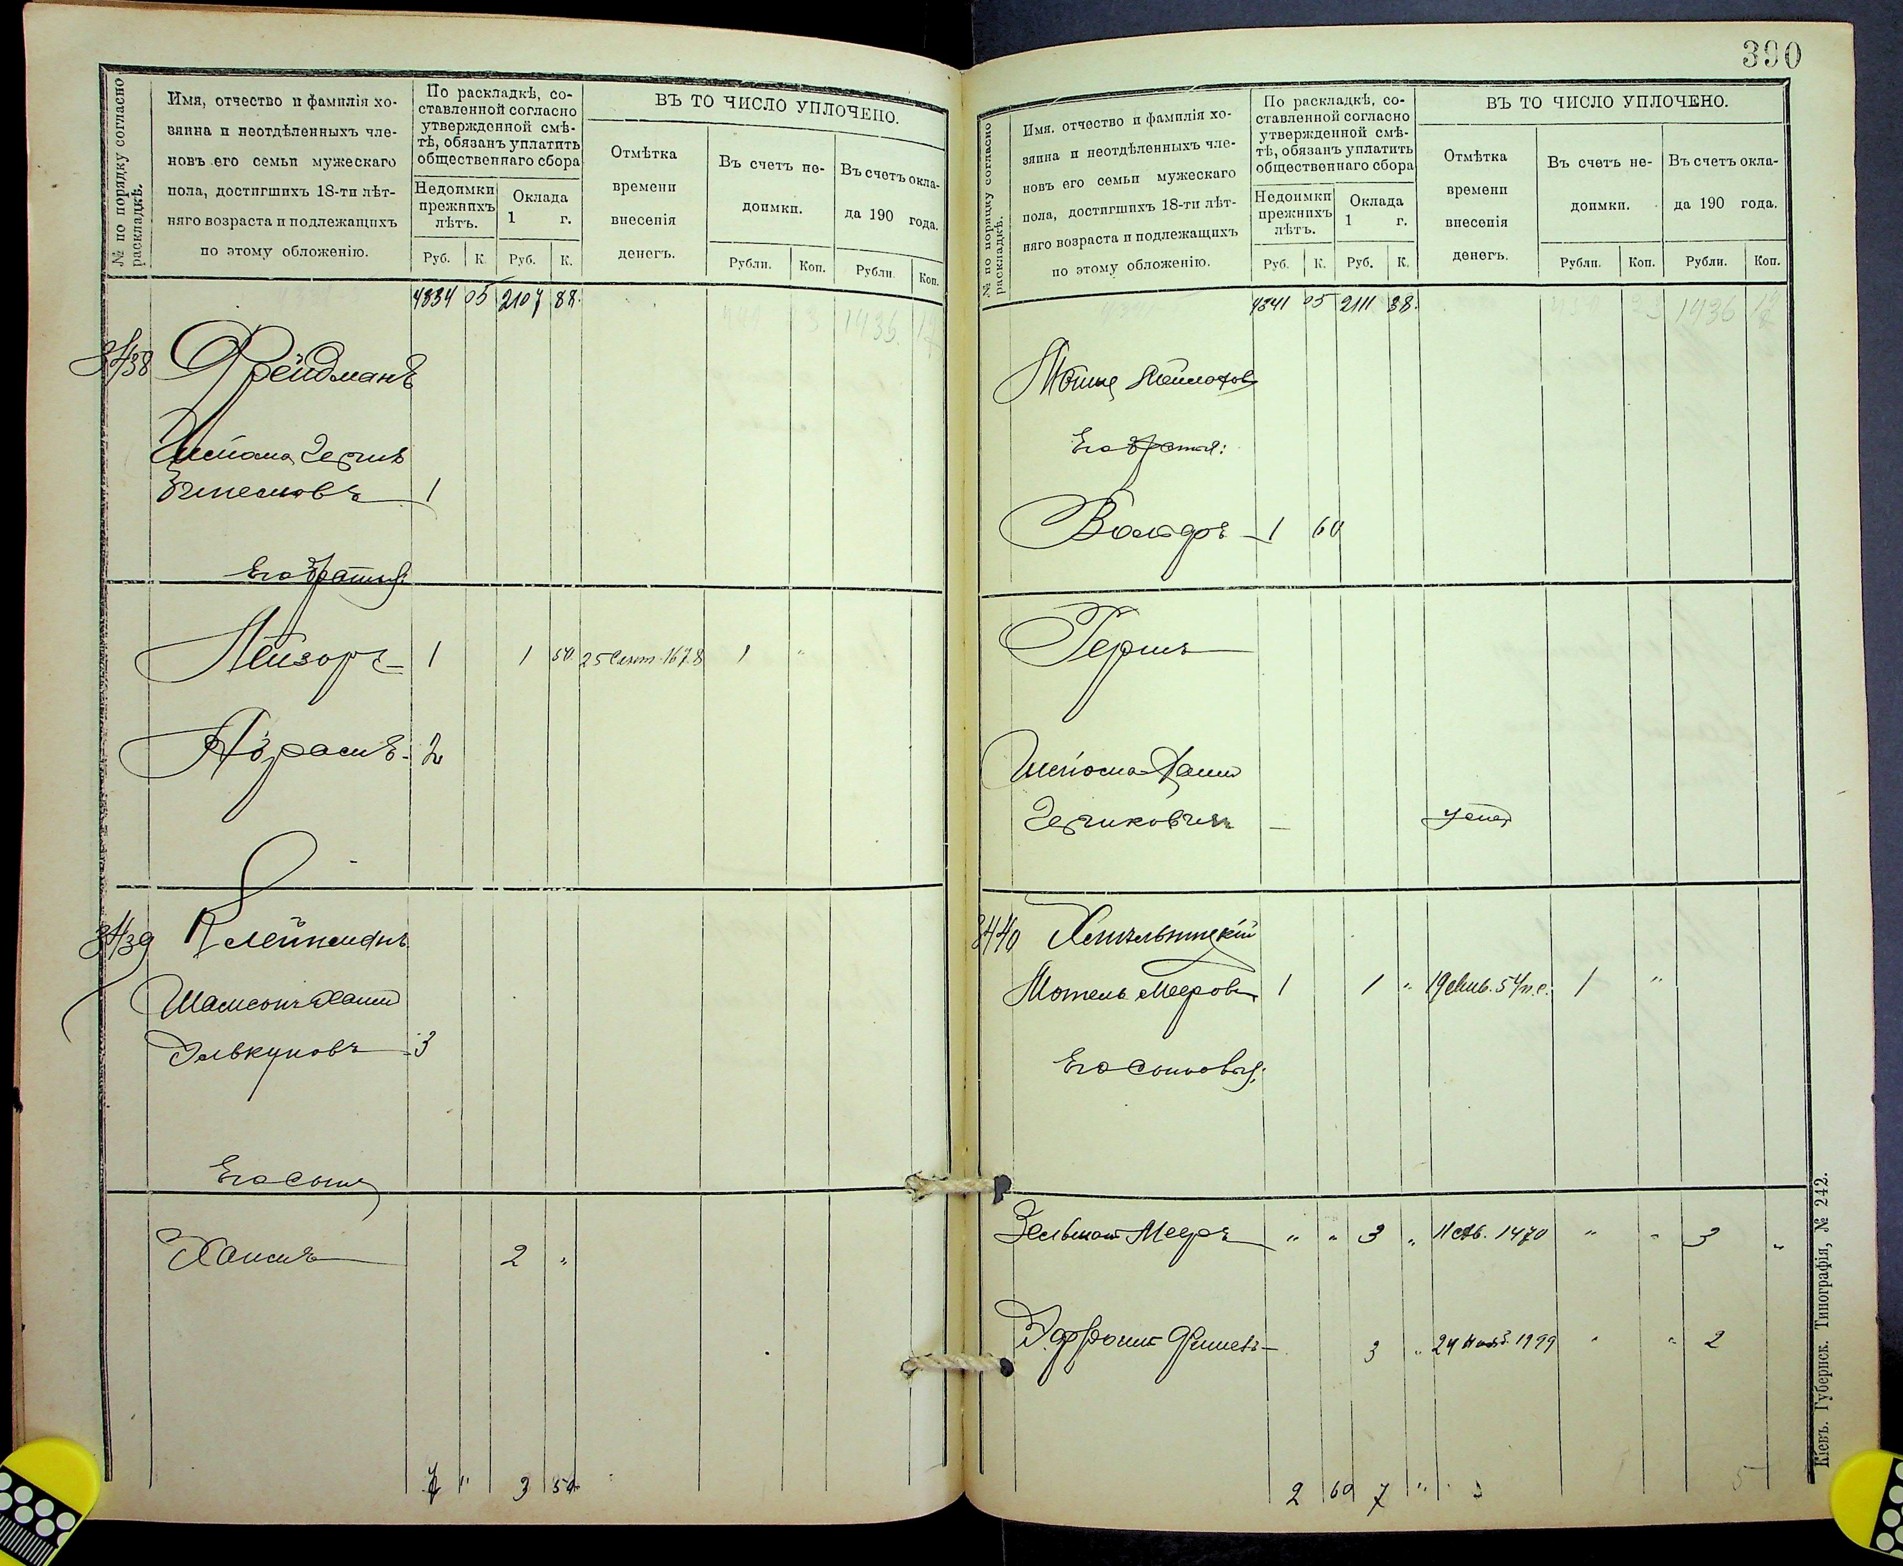 № по порядку согласно раскладкѣ.
Имя, отчество и фамилія хо-
зяина и неотдѣленныхъ чле-
новъ его семьи мужескаго
пола, достигшихъ 18-ти лѣт-
няго возраста и подлежащихъ
по этому обложенію.
По раскладкѣ, со-
ставленной согласно
утвержденной смѣ-
тѣ, обязанъ уплатить
общественнаго сбора
Недоимки
прежнихъ
лѣтъ.
Оклада
1 г.
Руб. К. Руб. К.
ВЪ ТО ЧИСЛО УПЛОЧЕНО.
Отмѣтка
времени
внесенія
денегъ.
Въ счетъ не-
доимки.
Въ счетъ окла-
да 190 года.
Рубли. Коп. Рубли. Коп.
4834 05 2107 88.
1436
3438 Фрейдманъ
Шлиома Гершъ
1
Его братья:
Лейзоръ 1 1 50 25 Сент. 1678 1 "
Абрамъ 2
3439 Клейнманъ
Шамсонъ Хаимъ
Элькуновъ 3
Его сынъ
Хаимъ 2 "
7 " 3 50
390
№ по порядку согласно раскладкѣ.
Имя, отчество и фамилія хо-
зяина и неотдѣленныхъ чле-
новъ его семьи мужескаго
пола, достигшихъ 18-ти лѣт-
няго возраста и подлежащихъ
по этому обложенію.
По раскладкѣ, со-
ставленной согласно
утвержденной смѣ-
тѣ, обязанъ уплатить
общественнаго сбора
Недоимки
прежнихъ
лѣтъ.
Оклада
1 г.
Руб. К. Руб. К.
ВЪ ТО ЧИСЛО УПЛОЧЕНО.
Отмѣтка
времени
внесенія
денегъ.
Въ счетъ не-
доимки.
Въ счетъ окла-
да 190 года.
Рубли. Коп. Рубли. Коп.
4341 05 2111 38.
1436
Мошко
Его братья:
Вольфъ 1 60
Гершъ
Шлиома Хаимъ
Гершковичъ
3440 Хмельницкій
Мотель Мееровъ 1 1 " 1 "
Его сыновья:
Зельманъ Мееръ " " 3 " 1470 " " 3 "
Эфроимъ Фишель 3 " 24 Нояб. 1999 " " 2
2 60 7 " 5
Кіевъ. Губернск. Типографія, № 242.